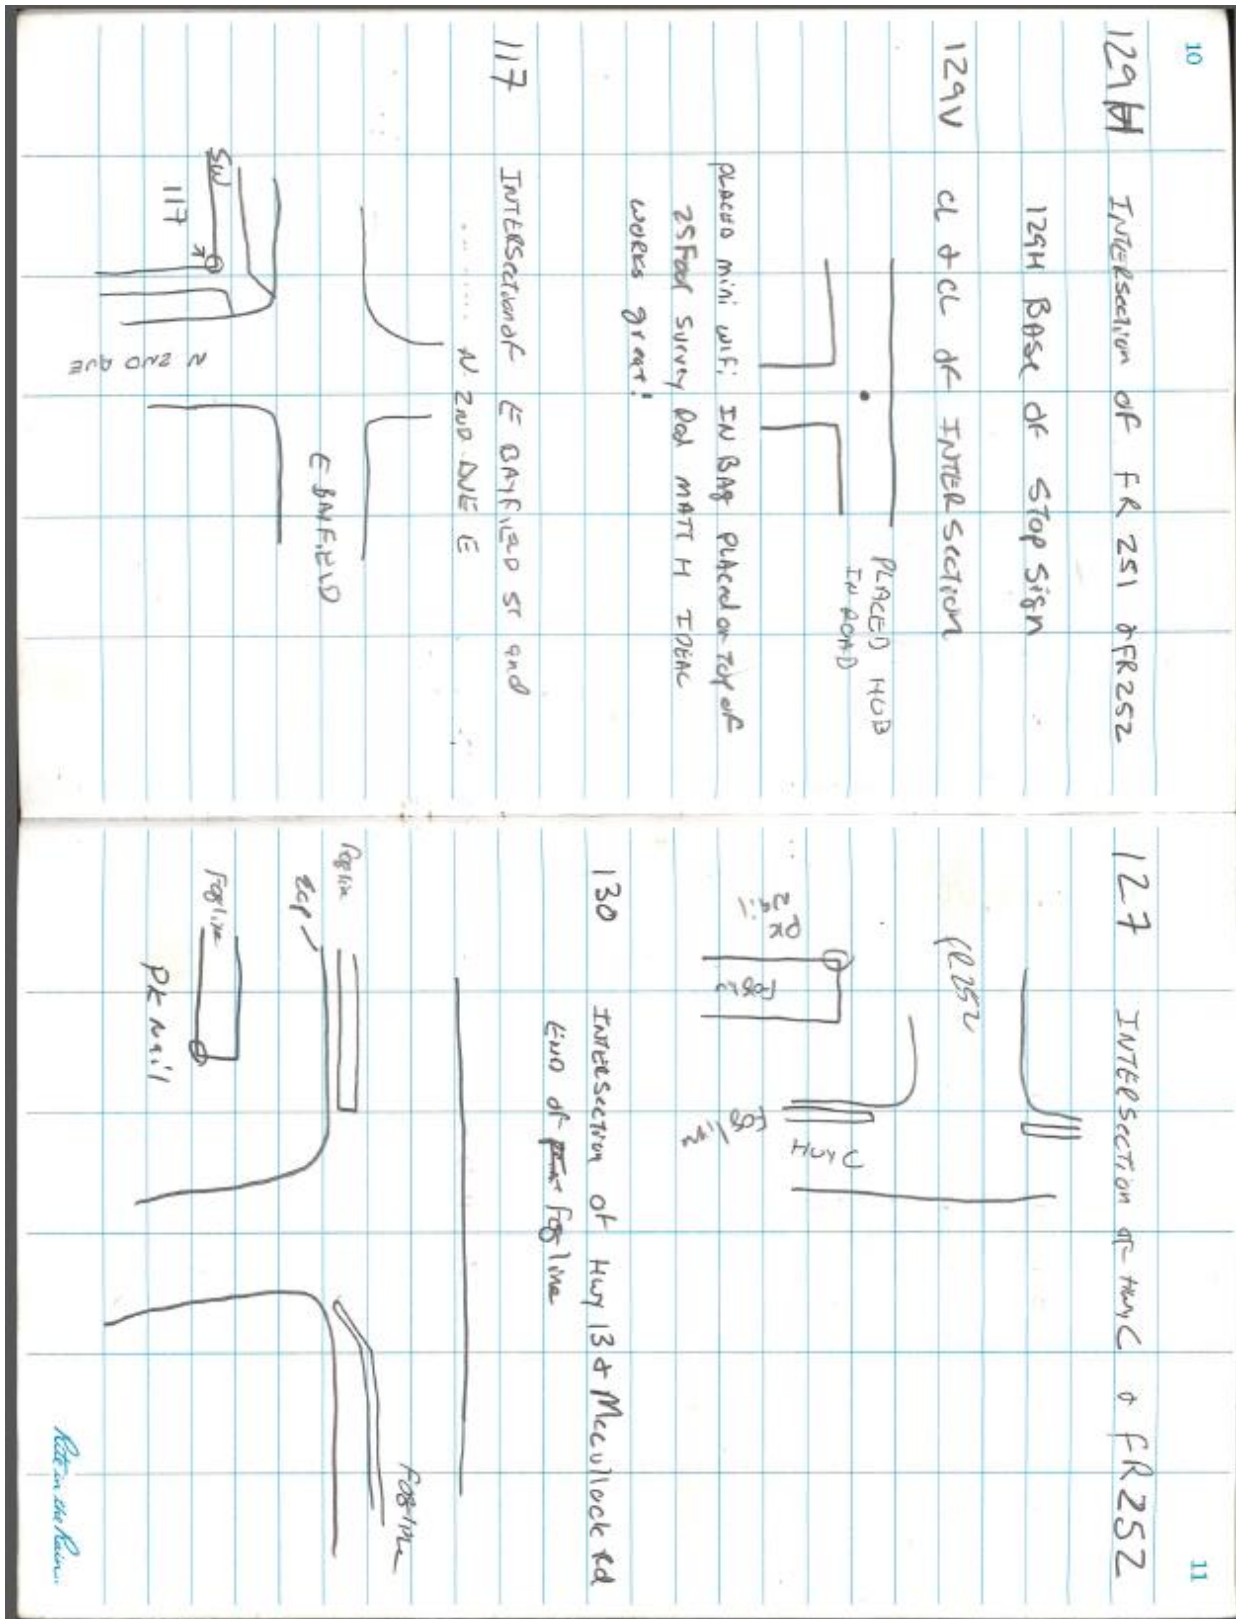 10
129H Intersection of FR 251 & FR252
129H Base of Stop Sign
129V CL & CL of Intersection
PLACED HUB
IN ROAD
PLACED mini wifi IN BAg PLACed on TOP of
25 Foot Survey Rod MATT H IDEAL
WORKS great!
117 INTERSection of E BAYFIELD ST and
N. 2ND AVE E
E BAYFIELD
N 2ND AVE
SW
117
11
127 INTERSection of Hwy C & FR252
FR252
PK
Nail
Fogli
Fogline
Hwy C
130 INTERSection of Hwy 13 & McCulloch Rd
END of Fog line
Fogline
Fogline
Fogline
PK Nail
Rite in the Rain